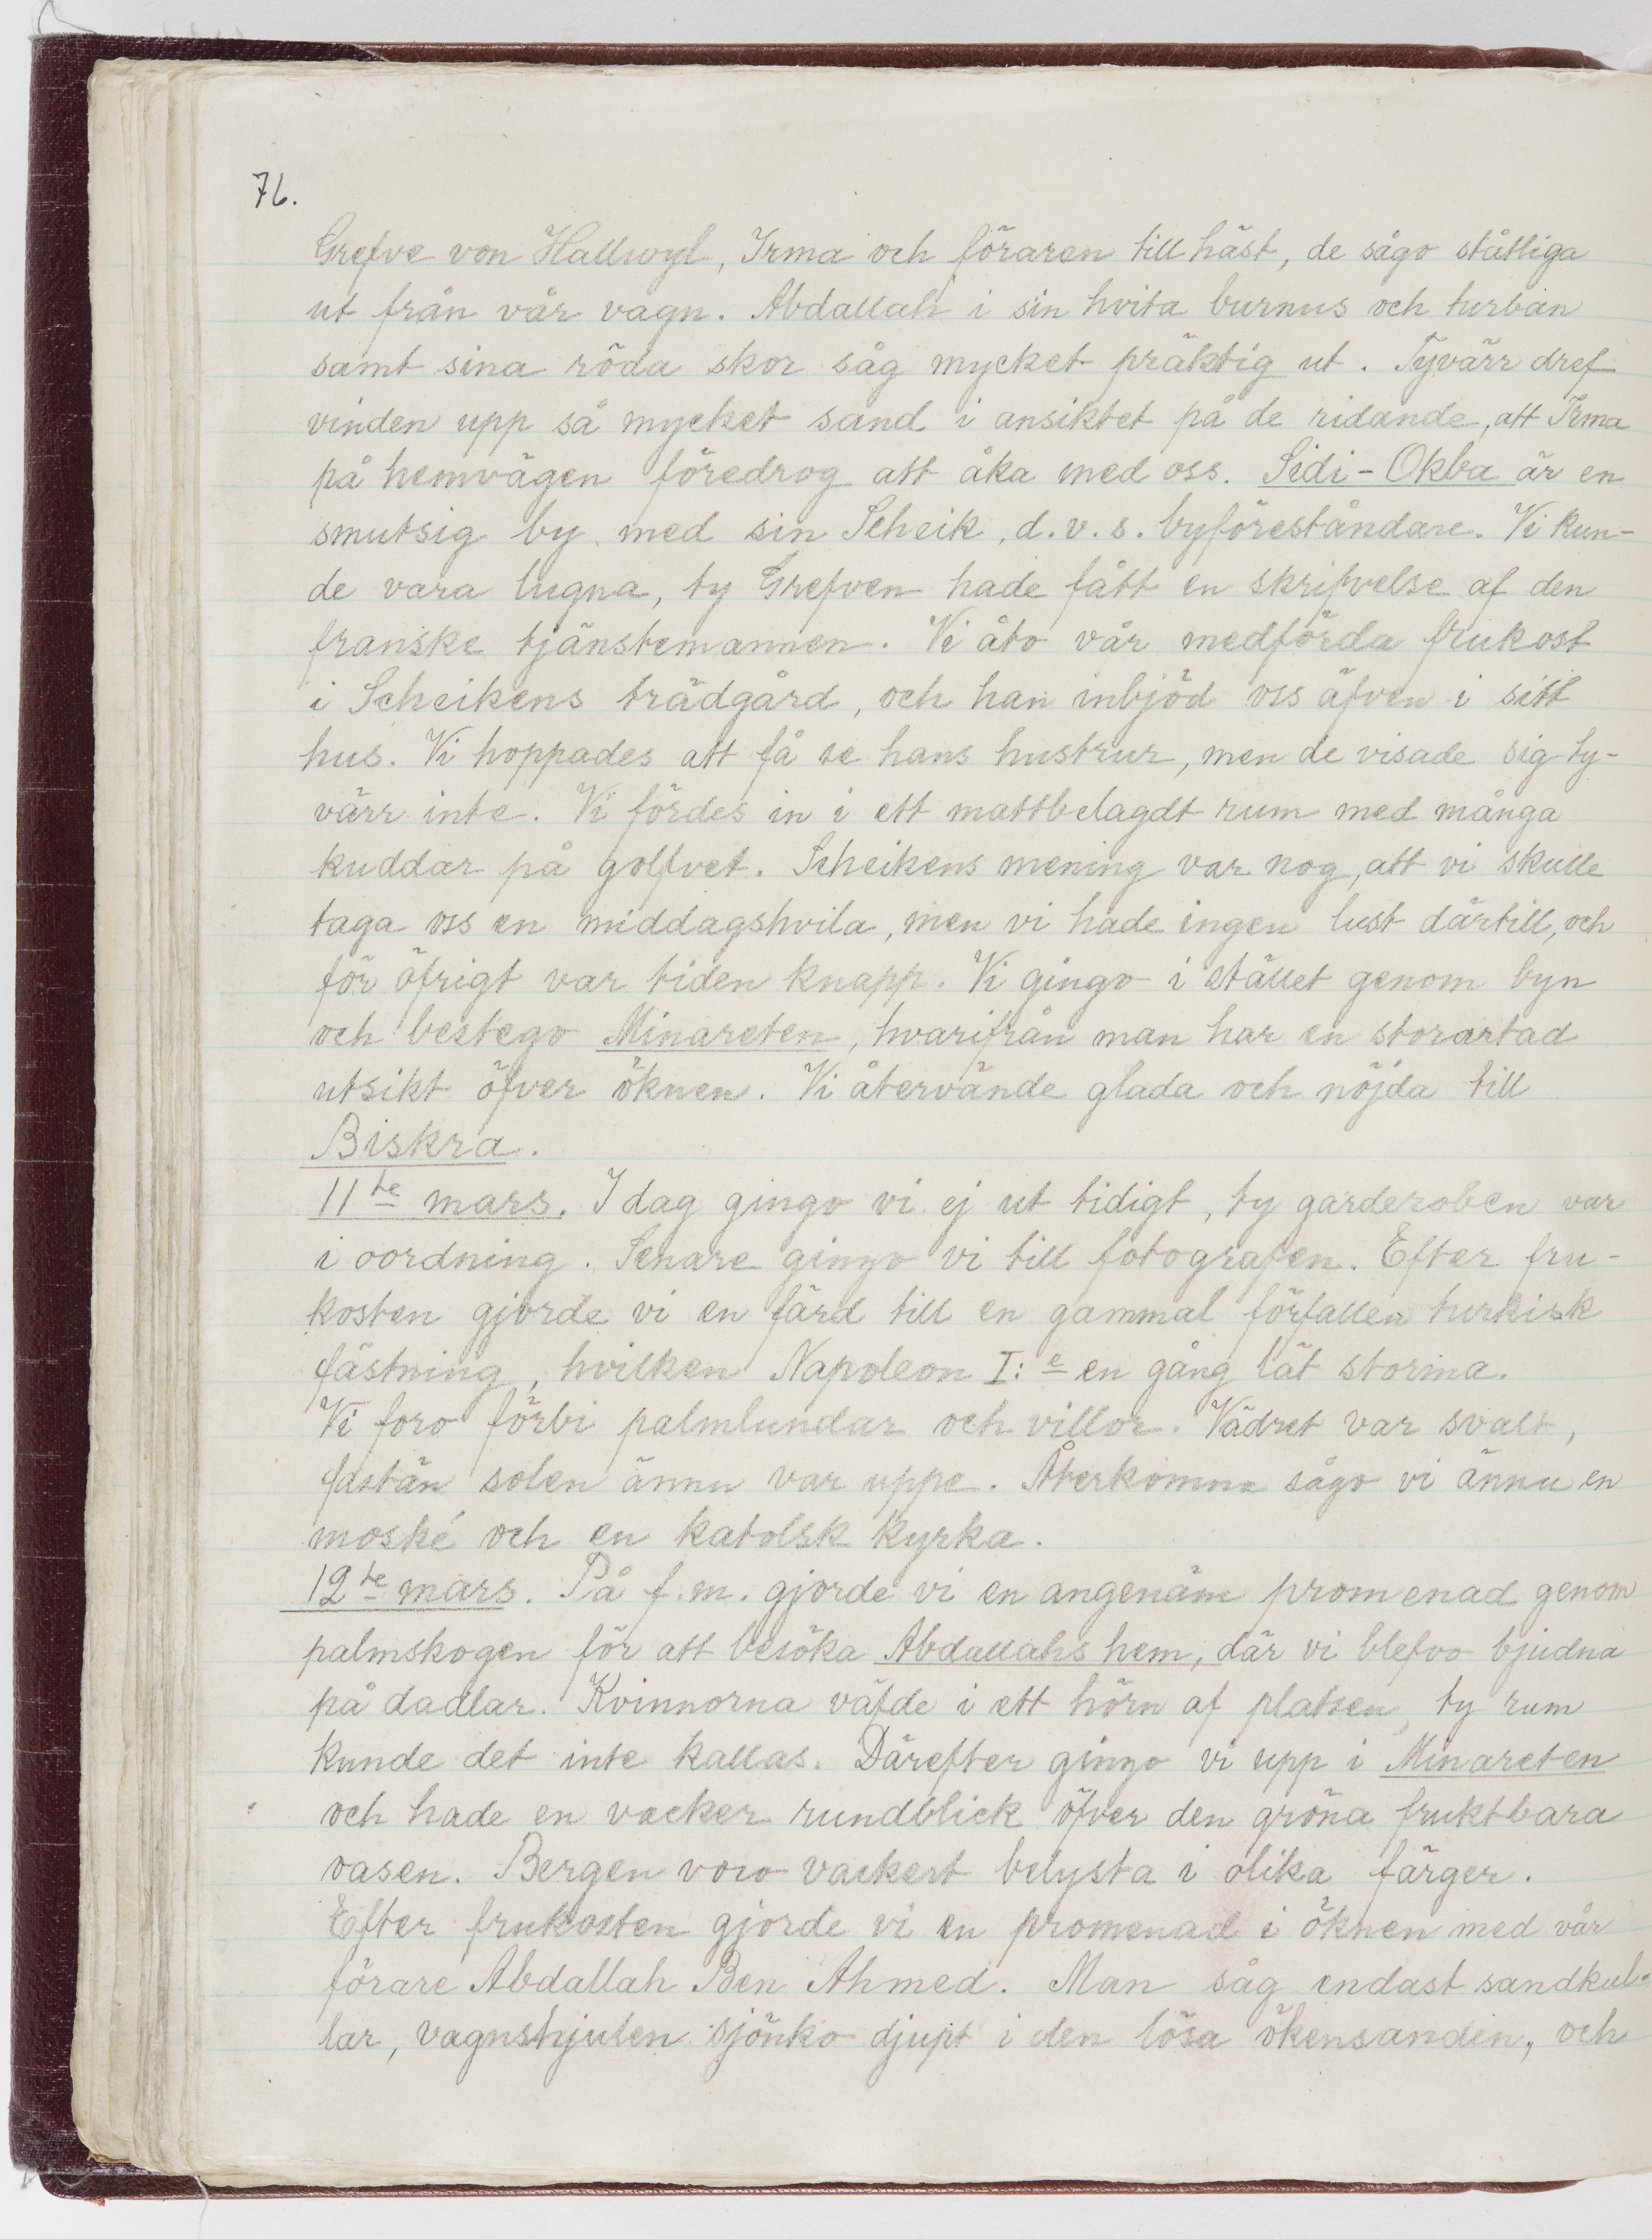 76.
Grefve von Hallwyl, Irma och föraren till häst, de sågo ståtliga
ut från vår vagn. Abdallah i sin hvita burnus och turban
samt sina röda skor såg mycket präktig ut. Tyvärr dref
vinden upp så mycket sand i ansiktet på de ridande, att Irma
på hemvägen föredrog att åka med oss. Sidi-Okba är en
smutsig by med sin Scheik, d.v.s. byföreståndare. Vi kun-
de vara lugna, ty Grefven hade fått en skrifvelse af den
franske tjänstemannen. Vi åto vår medförda frukost
i Scheikens trädgård, och han inbjöd oss äfven i sitt
hus. Vi hoppades att få se hans hustrur, men de visade sig ty-
värr inte. Vi fördes in i ett mattbelagdt rum med många
kuddar på golfvet. Scheikens mening var nog, att vi skulle
taga oss en middagshvila, men vi hade ingen lust därtill, och
för öfrigt var tiden knapp. Vi gingo i stället genom byn
och bestego Minareten, hvarifrån man har en storartad
utsikt öfver öknen. Vi återvände glada och nöjda till
Biskra.
11te mars. I dag gingo vi ej ut tidigt, ty garderoben var
i oordning. Senare gingo vi till fotografen. Efter fru-
kosten gjorde vi en färd till en gammal förfallen turkisk
fästning, hvilken Napoleon I:e en gång lät storma.
Vi foro förbi palmlundar och villor. Vädret var svalt,
fastän solen ännu var uppe. Återkomna sågo vi ännu en
moské och en katolsk kyrka.
12te mars. På f.m. gjorde vi en angenäm promenad genom
palmskogen för att besöka Abdallahs hem, där vi blefvo bjudna
på dadlar. Kvinnorna väfde i ett hörn af platsen, ty rum
kunde det inte kallas. Därefter gingo vi upp i Minareten
och hade en vacker rundblick öfver den gröna fruktbara
oasen. Bergen voro vackert belysta i olika färger.
Efter frukosten gjorde vi en promenad i öknen med vår
förare Abdallah Ben Ahmed. Man såg endast sandkul-
lar, vagnshjulen sjönko djupt i den lösa ökensanden, och